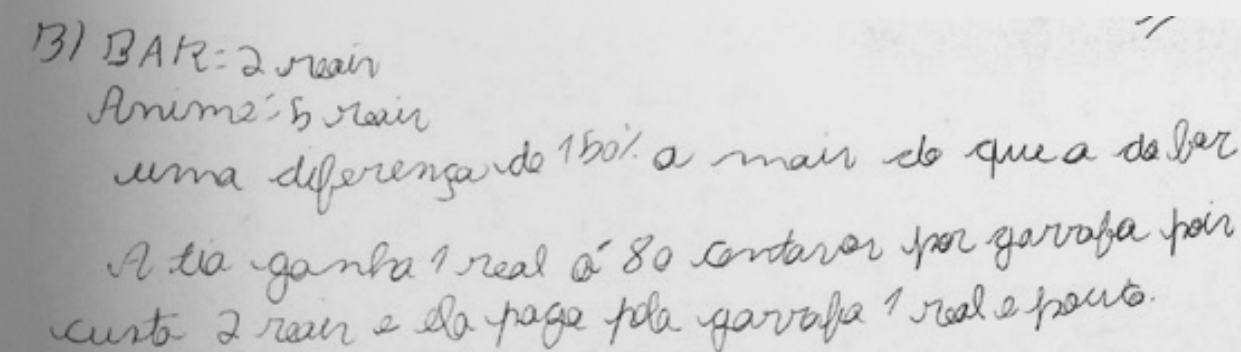 B) BAR: 2 reais
Anime: 5 reais
uma diferença de 150% a mais do que a do bar
A tia ganha 1 real á 80 centavos por garrafa pois
custa 2 reais e ela paga pela garrafa 1 real e pouco.